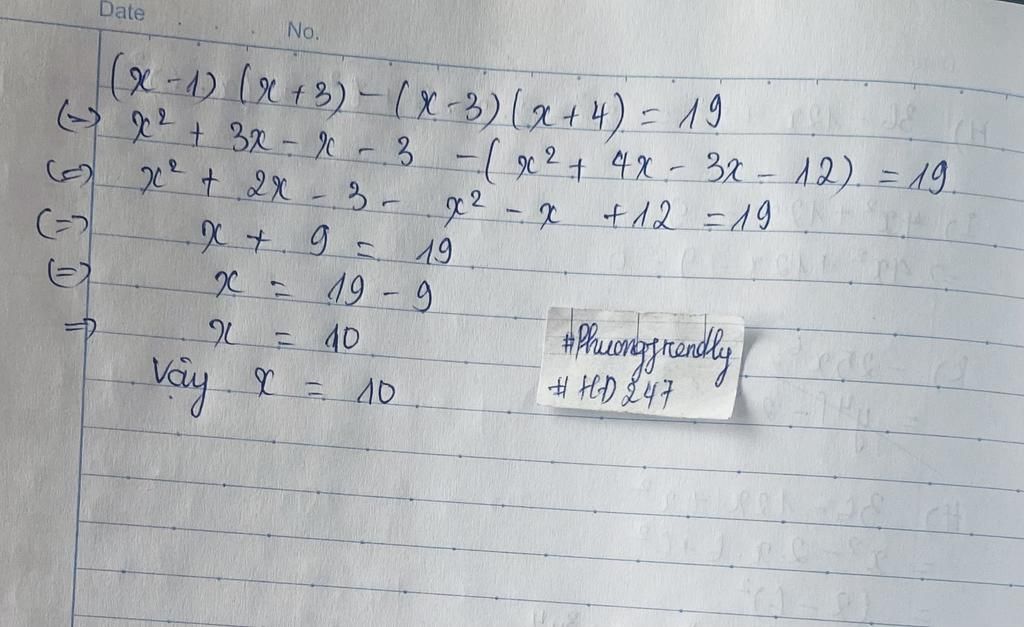 Date
No.
(x - 1) (x + 3) - (x - 3) (x + 4) = 19
(=) x² + 3x - x - 3 - (x² + 4x - 3x - 12) = 19
(=) x² + 2x - 3 - x² - x + 12 = 19
(=) x + 9 = 19
(=) x = 19 - 9
=> x = 10
Vậy x = 10
#Phuongfrendly
#HD247